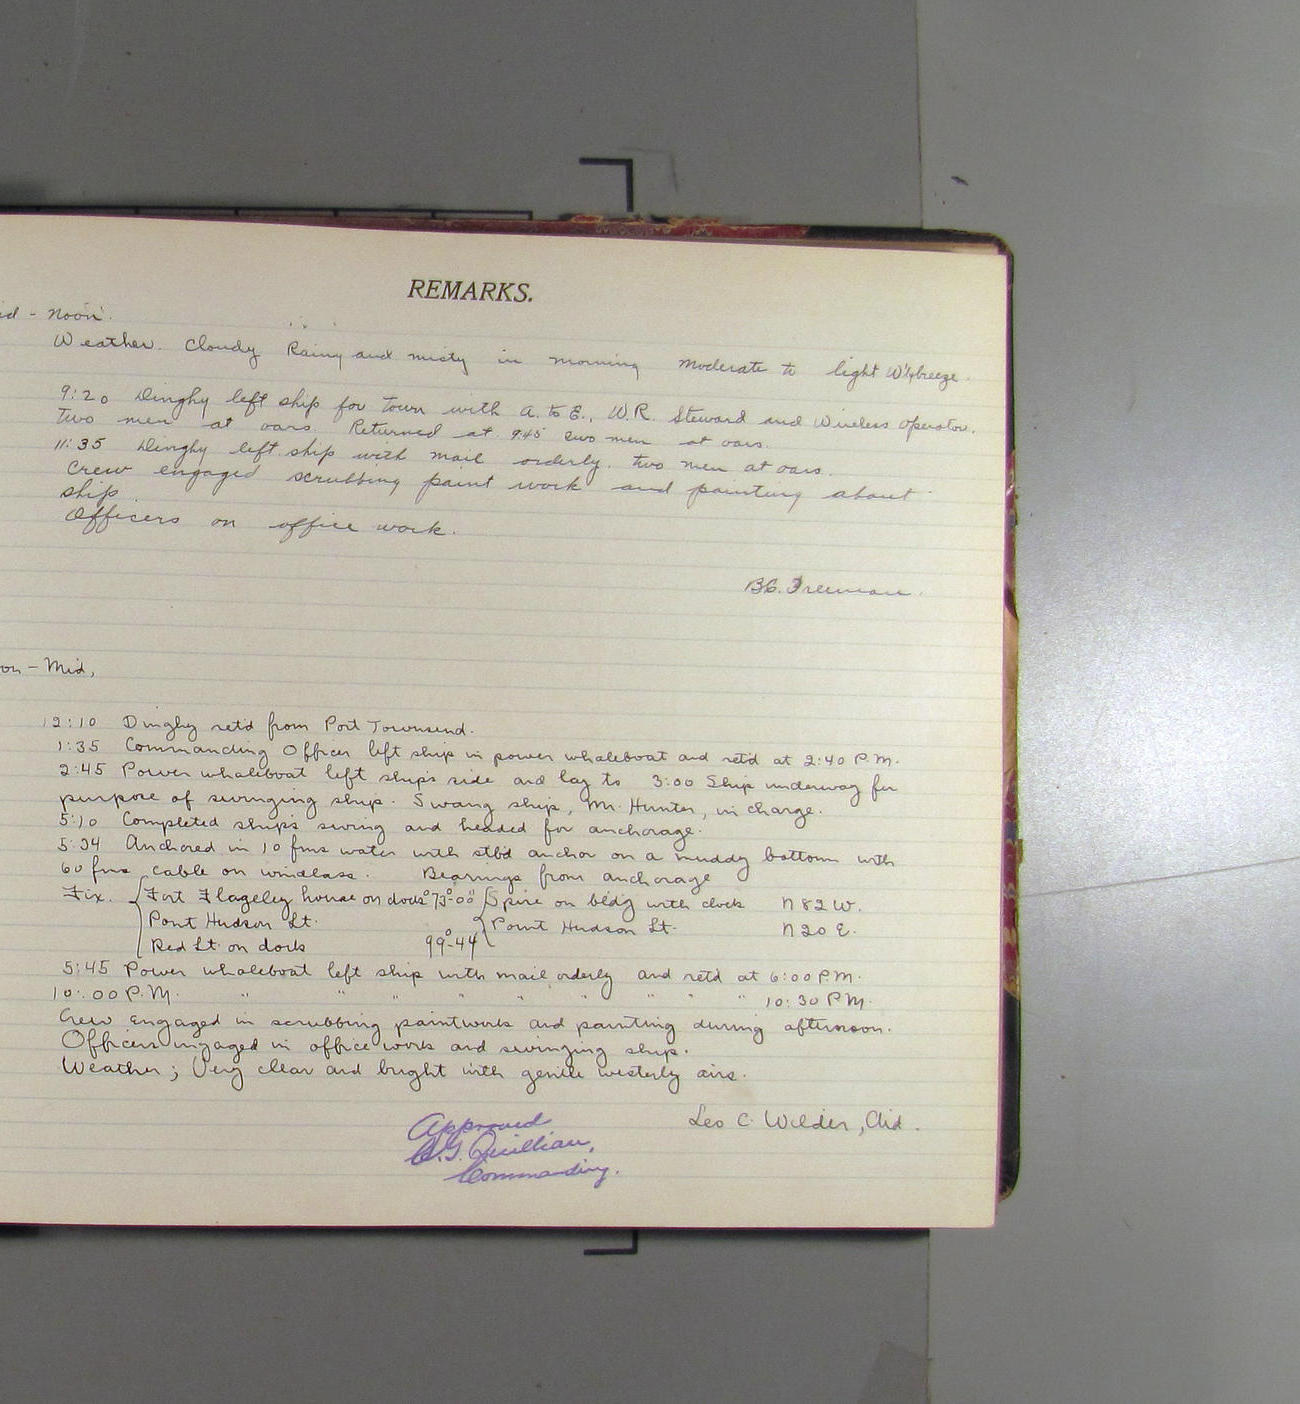 REMARKS.
- Noon.
Weather. Cloudy Rainy and misty in morning moderate to light W'ly breeze.
9:20 Dinghy left ship for town with A. to E., W.R. Steward and Wireless operator.
two men at oars. Returned at 9:45 two men at oars.
11:35 Dinghy left ship with mail orderly. two men at oars.
Crew engaged scrubbing paint work and painting about
ship.
Officers on office work.
Freeman.
- Mid,
12:10 Dinghy ret'd from Port Townsend.
1:35 Commanding Officer left ship in power whaleboat and ret'd at 2:40 P.M.
2:45 Power whaleboat left ship's side and lay to 3:00 Ship underway for
purpose of swinging ship. Swang ship, Mr. Hunter, in charge.
5:10 Completed ship's swing and headed for anchorage.
5:34 Anchored in 10 fms water with stb'd anchor on a muddy bottom with
60 fms cable on windlass. Bearings from anchorage
Fix. Fort Flageley house on dock 73°-00' Spire on bldg with clock N 82 W.
Point Hudson Lt. Point Hudson Lt. N 20 E.
Red Lt. on dock 99°-44'
5:45 Power whaleboat left ship with mail orderly and ret'd at 6:00 P.M.
10:00 P.M. " " " " " " " " " 10:30 P.M.
Crew engaged in scrubbing paintwork and painting during afternoon.
Officers engaged in office work and swinging ship.
Weather; Very clear and bright with gentle westerly airs.
Leo C. Wilder, Aid.
Approved
Quillian,
Commanding.